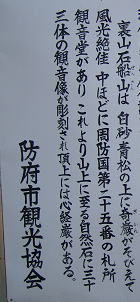 裏山石船山は白砂青松の上に奇巌がそびえて
風光絶佳 中ほどに周防国第二十五番の札所
観音堂があり これより山上に至る自然石に三十
三体の観音像が彫刻され頂上には心経巌がある。
防府市観光協会